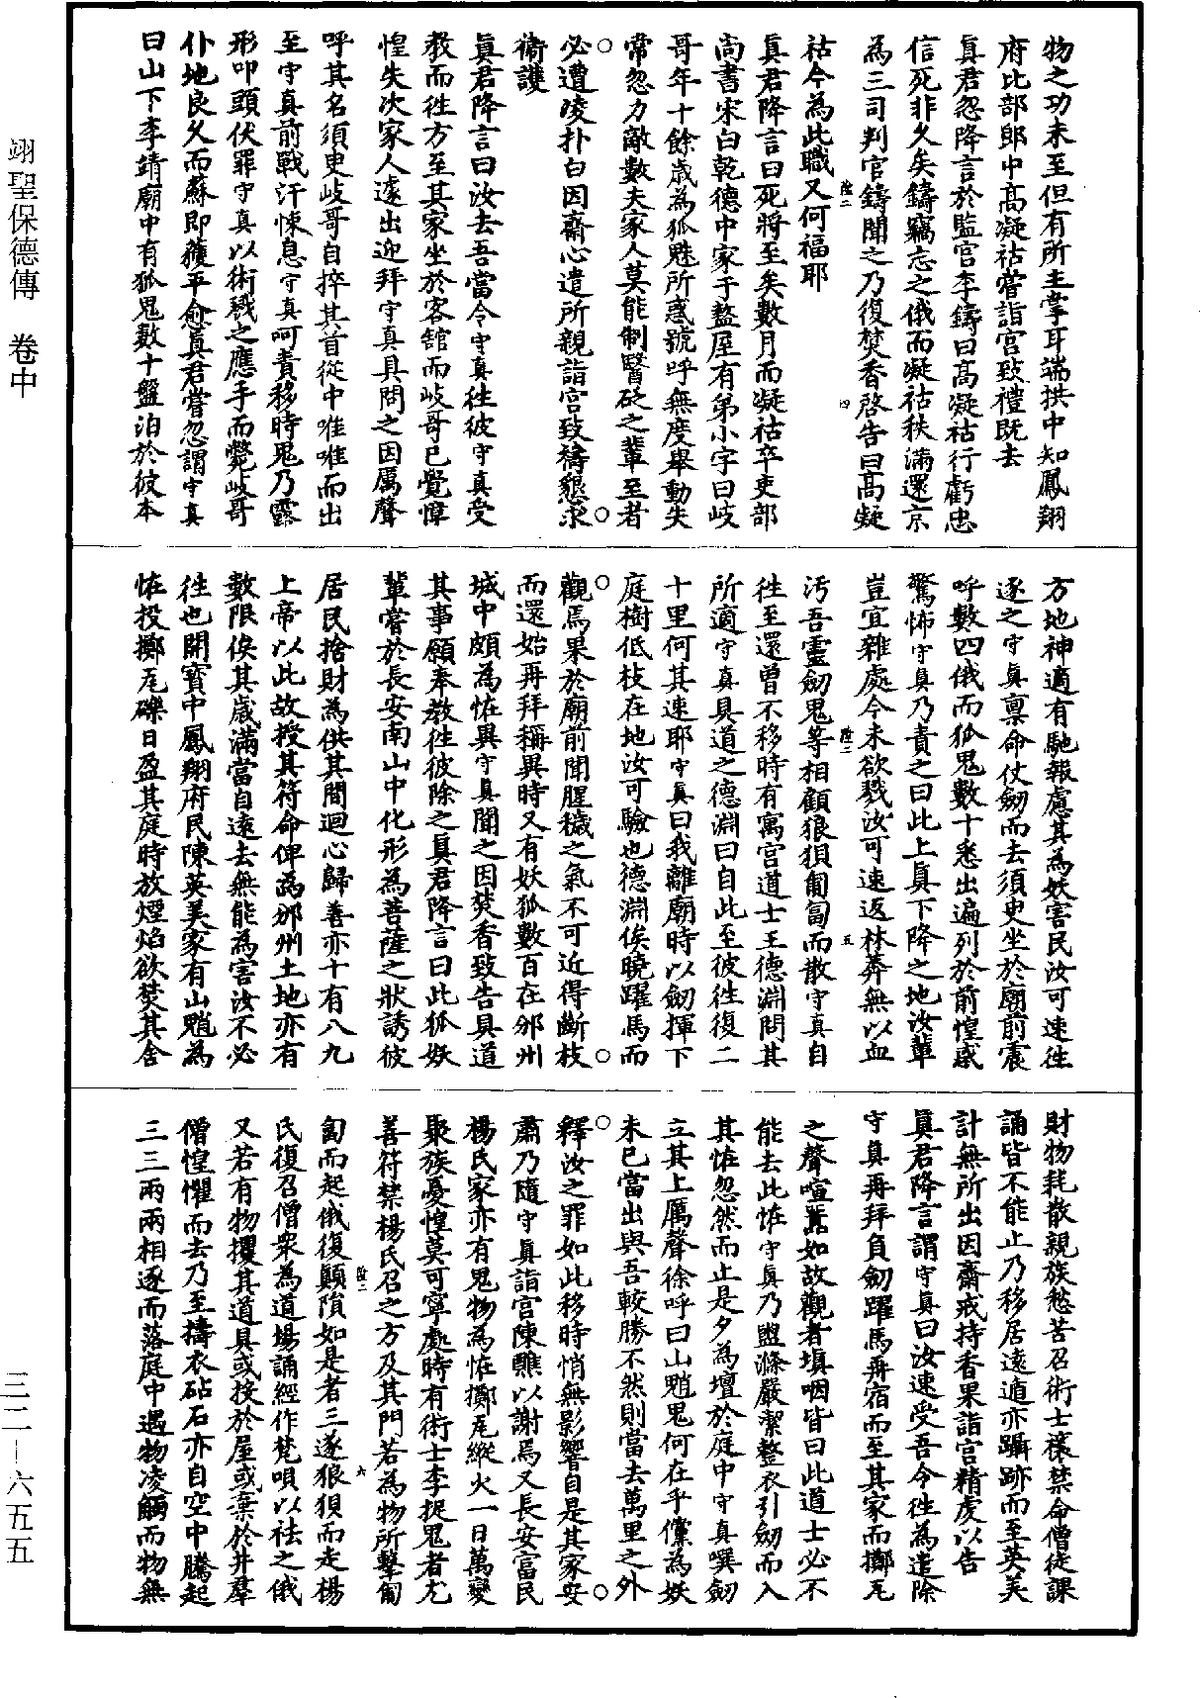 翊聖保德傳　卷中
物之功未至但有所主掌耳端拱中知鳳翔
府比部郎中高凝祜嘗詣宮致禮既去
真君忽降言於監官李鑄曰高凝祜行虧忠
信死非久矣鑄竊忘之俄而凝祜秩滿還京
為三司判官鑄聞之乃復焚香啓告曰高凝
祜今為此職又何福耶
真君降言曰死將至矣數月而凝祜卒吏部
尚書宋白乾德中家于盩厔有弟小字曰岐
哥年十餘歲為狐魅所惑號呼無度舉動失
常忽力敵數夫家人莫能制醫砭之輩至者
必遭凌扑白因齋心遣所親詣宮致禱懇求
衛護
真君降言曰汝去吾當令守真往彼守真受
教而徃方至其家坐於客舘而岐哥已覺慞
惶失次家人遽出迎拜守真具問之因厲聲
呼其名須臾岐哥自捽其首從中唯唯而出
至守真前戰汗悚息守真呵責移時鬼乃露
形叩頭伏罪守真以術戮之應手而斃岐哥
仆地良久而蘇即獲平愈真君嘗忽謂守真
曰山下李靖廟中有狐鬼數十盤泊於彼本
方地神適有馳報慮其為妖害民汝可速徃
逐之守真稟命仗劒而去須臾坐於廟前震
呼數四俄而狐鬼數十悉出遍列於前惶惑
驚怖守真乃責之曰此上真下降之地汝輩
豈宜雜處今未欲戮汝可速返林莽無以血
汚吾靈劒鬼等相顧狼狽匍匐而散守真自
徃至還曾不移時有寓宮道士王德淵問其
所適守真具道之德淵曰自此至彼徃復二
十里何其速耶守真曰我離廟時以劒揮下
庭樹低枝在地汝可驗也德淵俟曉躍馬而
觀焉果於廟前聞腥穢之氣不可近得斷枝
而還始再拜稱異時又有妖狐數百在邠州
城中頗為恠異守真聞之因焚香致告具道
其事願奉教徃彼除之真君降言曰此狐妖
輩嘗於長安南山中化形為菩薩之狀誘彼
居民捨財為供其間迴心歸善亦十有八九
上帝以此故授其符命俾為邠州土地亦有
數限俟其歲滿當自遠去無能為害汝不必
徃也開寶中鳳翔府民陳英美家有山魈為
恠投擲瓦礫日盈其庭時放煙焰欲焚其舍
財物耗散親族愁苦召術士禳禁命僧徒課
誦皆不能止乃移居遠遁亦躡跡而至英美
計無所出因齋戒持香果詣宮精虔以告
真君降言謂守真曰汝速受吾令徃為遣除
守真再拜負劒躍馬再宿而至其家而擲瓦
之聲喧囂如故觀者塡咽皆曰此道士必不
能去此恠守真乃盥滌嚴潔整衣引劒而入
其恠忽然而止是夕為壇於庭中守真噀劒
立其上厲聲徐呼曰山魈鬼何在乎儻為妖
未已當出與吾較勝不然則當去萬里之外
釋汝之罪如此移時悄無影響自是其家安
肅乃隨守真詣宮陳醮以謝焉又長安富民
楊氏家亦有鬼物為恠擲瓦縱火一日萬變
聚族憂惶莫可寧處時有術士李捉鬼者尤
善符禁楊氏召之方及其門若為物所擊匍
匐而起俄復顛隕如是者三遂狼狽而走楊
氏復召僧衆為道場誦經作梵唄以祛之俄
又若有物攫其道具或投於屋或棄於井羣
僧惶懼而去乃至擣衣砧石亦自空中騰起
三三兩兩相逐而落庭中遇物凌觸而物無
三二—六五五